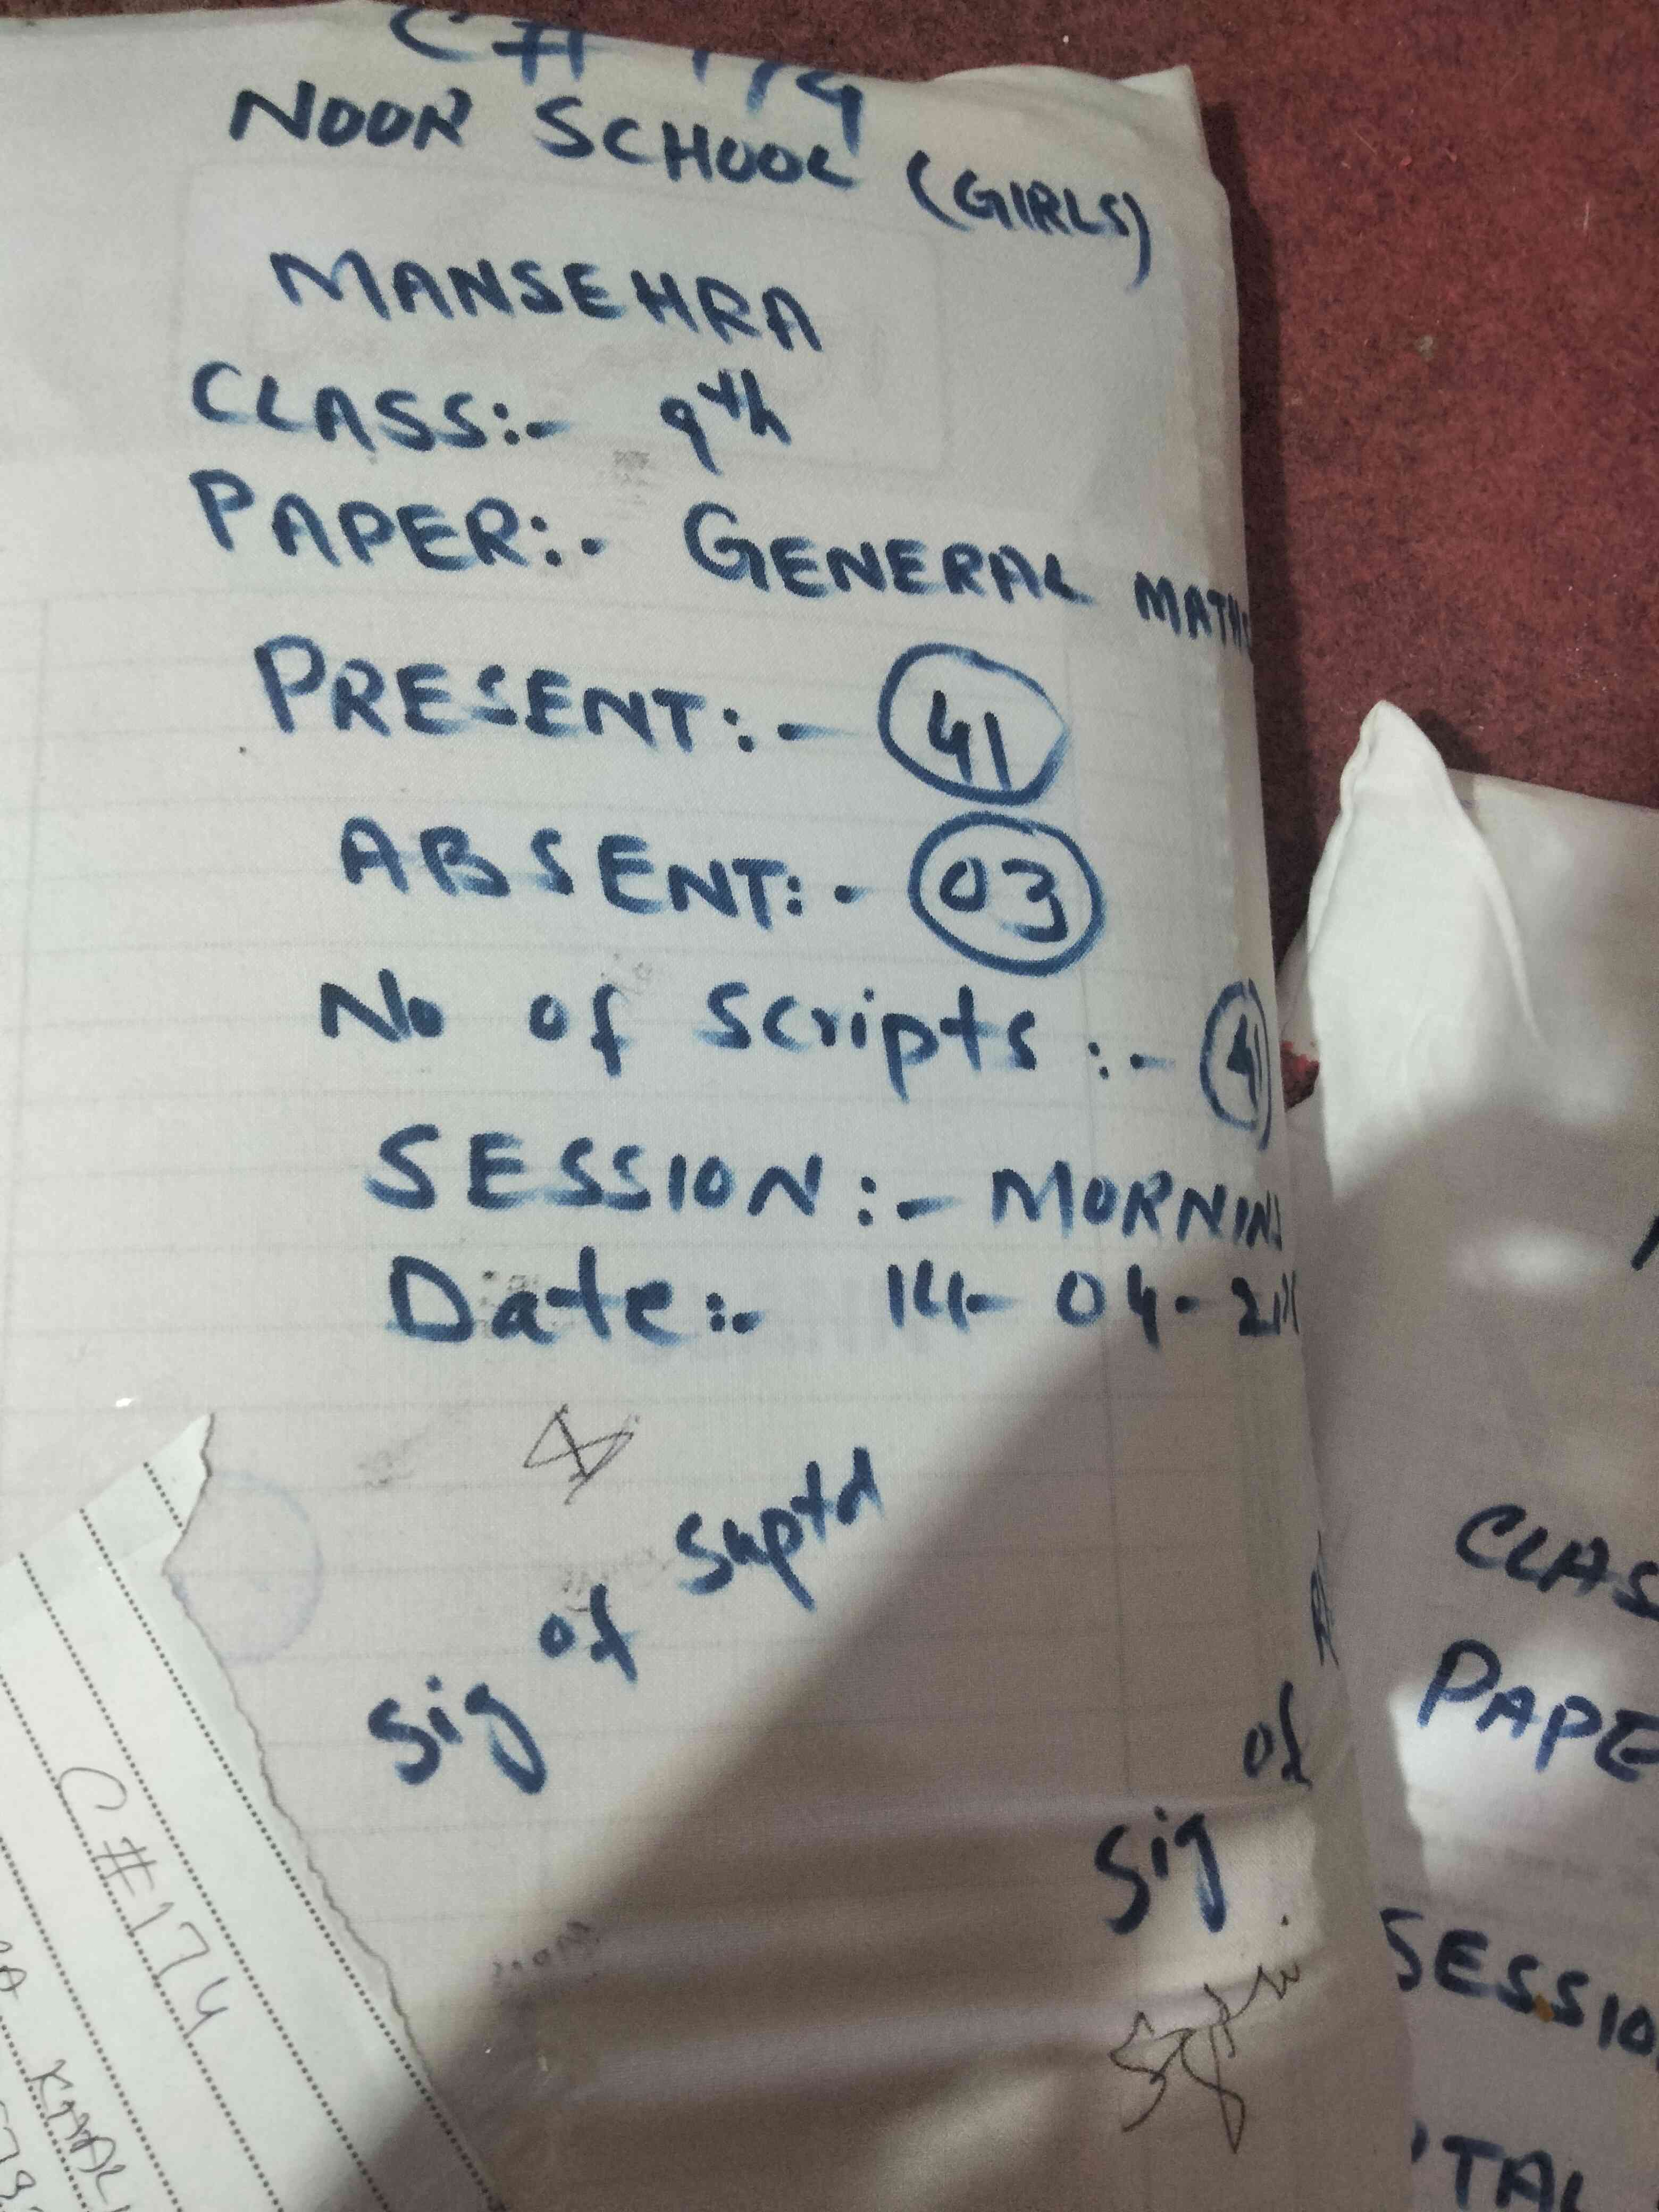 C# 174
NOOR SCHOOL (GIRLS)
MANSEHRA
CLASS:- 9th
PAPER:- GENERAL MATH
PRESENT:- 41
ABSENT:- 03
No of Scripts :- 41
SESSION :- MORNIN
Date:- 14-04-2
Sig of Suptd
Sig of
C#174
CLAS
PAPE
SESSIO
TAL